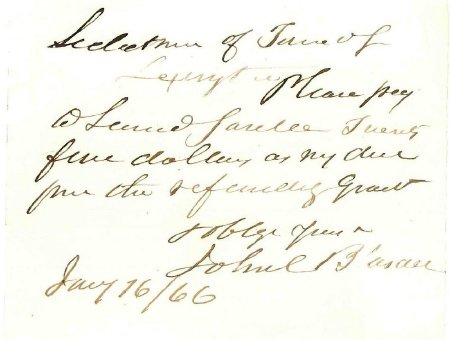 Selectmen of Town of
Lexington
Please pay
Twenty
five dollars as my due
per the refunding Grant
& oblige yours
John C B
Jany 16/66